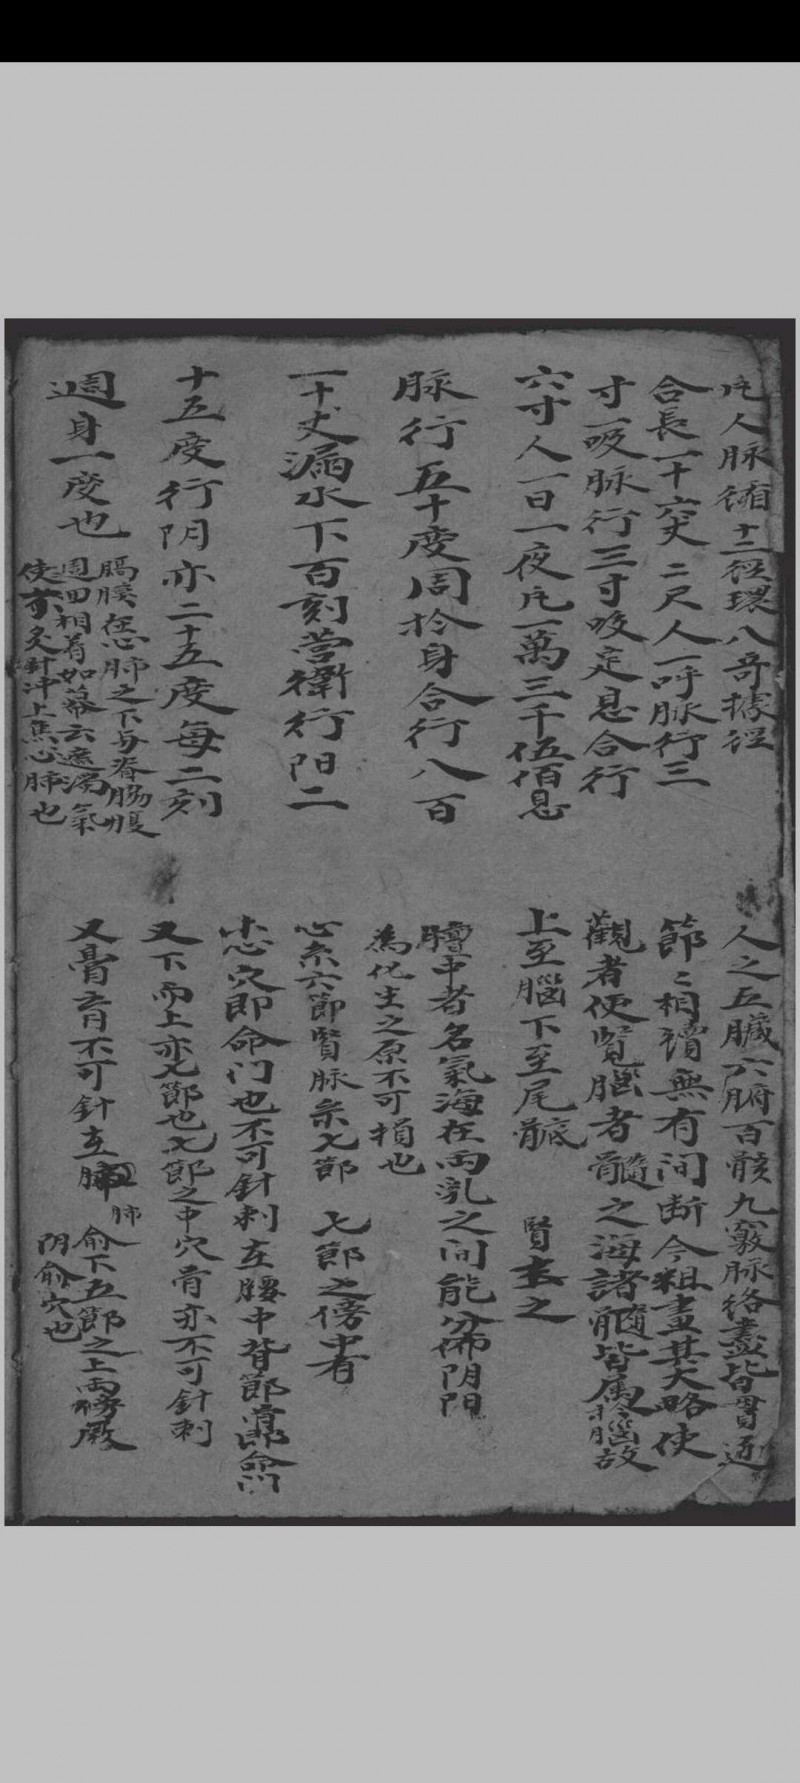 凢人脉循十二徑環八奇據徑
合長一十六丈二尺人一呼脉行三
寸一吸脉行三寸呼定息合行
六寸人一日一夜凢一萬三千伍佰息
脉行五十度周扵身合行八百
一十丈漏水下百刻营衛行阳二
十五度行阴亦二十五度每二刻
週身一度也
膈膜在心肺之下与脊肠腹
週回相着如幕云遮濁氣
使不灸針冲上焦心肺也
人之五臓六腑百骸九竅脉络盡皆貫通
節〻相續無有间断今粗畫其大略使
觀者便覧腦者髓之海諸髓皆属扵腦故
上至腦下至尾骶 賢主之
膻中者名氣海在両乳之间能分佈阴阳
為化生之原不可損也
心系六節賢脉系七節 七節之傍中有
小心穴即命门也不可針刺在腰中背節骨即命门
又下而上亦七節也七節之中穴骨亦不可針刺
又膏肓不可針在肺
肺
俞下五節之上両傍厥
阴俞穴也